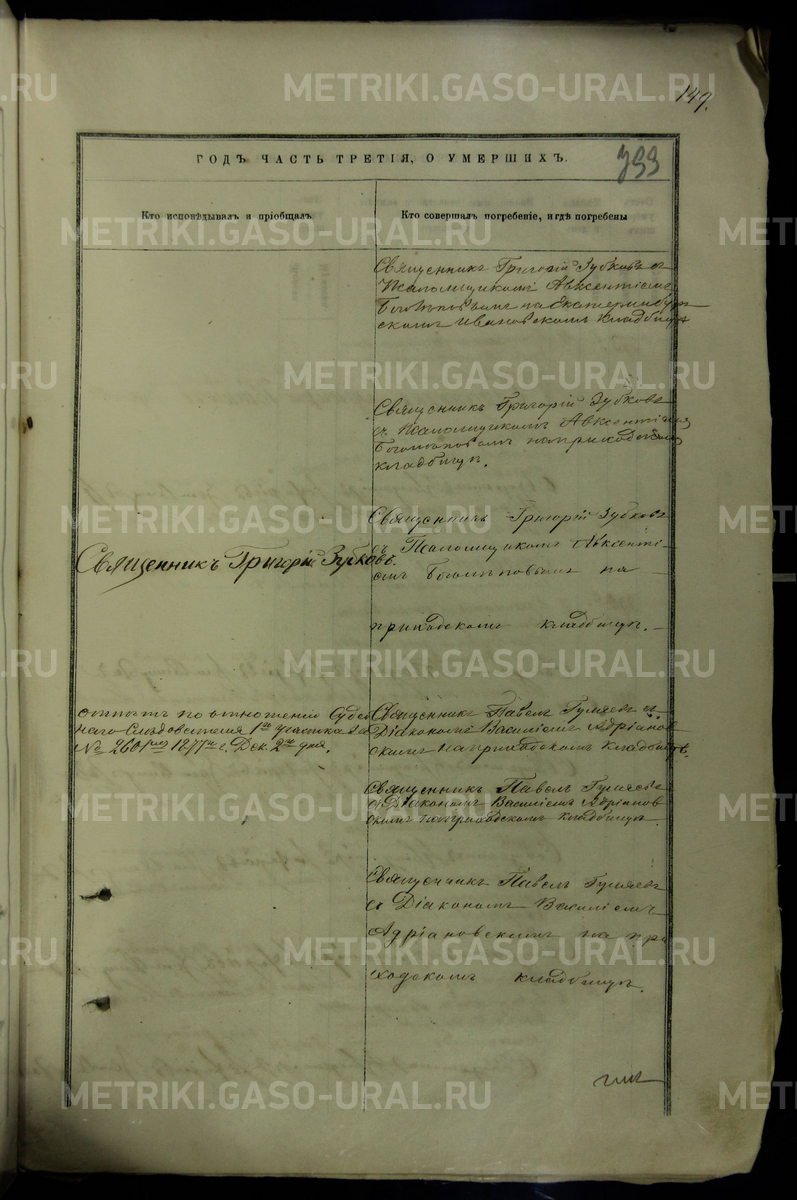 149.
ГОДЪ ЧАСТЬ ТРЕТІЯ, О УМЕРШИХЪ.
799
Кто исповѣдывалъ и пріобщалъ
Кто совершалъ погребеніе, и гдѣ погребены
Священникъ Григорій Зубковъ съ
Псаломщикомъ Авксентіемъ
Боголѣповымъ на Екатеринбур
скомъ Ивановскомъ кладбищѣ
Священникъ Григорій Зубковъ
съ Псаломщикомъ Авксентіемъ
Боголѣповымъ на приходскомъ
кладбищѣ.
Священникъ Григорій Зубковъ.
Священникъ Григорій Зубковъ
съ Псаломщикомъ Авксенті-
емъ Боголѣповымъ на
приходскомъ кладбищѣ.
по отношенію Судеб
наго Слѣдователя 1го участка
№ 2601 1877го г. Дек. 2го дня.
Священникъ Павелъ Гуляевъ съ
Діакономъ Василіемъ Адріанов
скимъ на приходскомъ кладбищѣ.
Священникъ Павелъ Гуляевъ
съ Діакономъ Василіемъ Адріанов
скимъ на приходскомъ кладбищѣ.
Священникъ Павелъ Гуляевъ
съ Діакономъ Василіемъ
Адріановскимъ на при
ходскомъ кладбищѣ.
METRIKI.GASO-URAL.RU